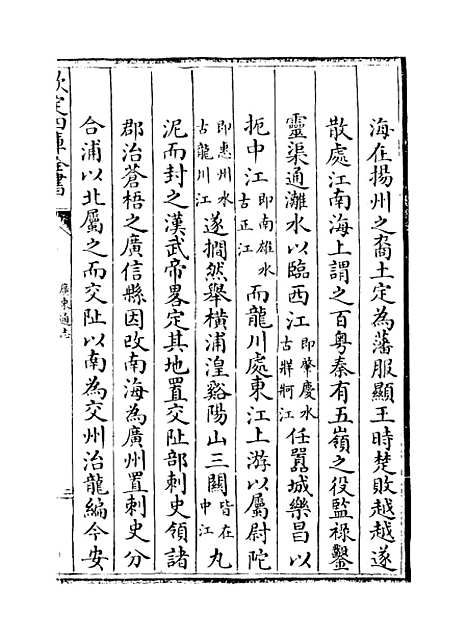 海在揚州之裔土定為藩服顯王時楚敗越越遂
散處江南海上謂之百粤秦有五嶺之役監祿鑿
靈渠通灕水以臨西江即肇慶水古牂牁江任囂城樂昌以
扼中江即南雄水古正江而龍川處東江上游以屬尉陀
即惠州水古龍川江遂擱然舉横浦湟谿陽山三關皆在中江丸
泥而封之漢武帝畧定其地置交阯部刺史領諸
郡治蒼梧之廣信縣因改南海為廣州置刺史分
合浦以北屬之而交阯以南為交州治龍編今安
欽定四庫全書
廣東通志
三